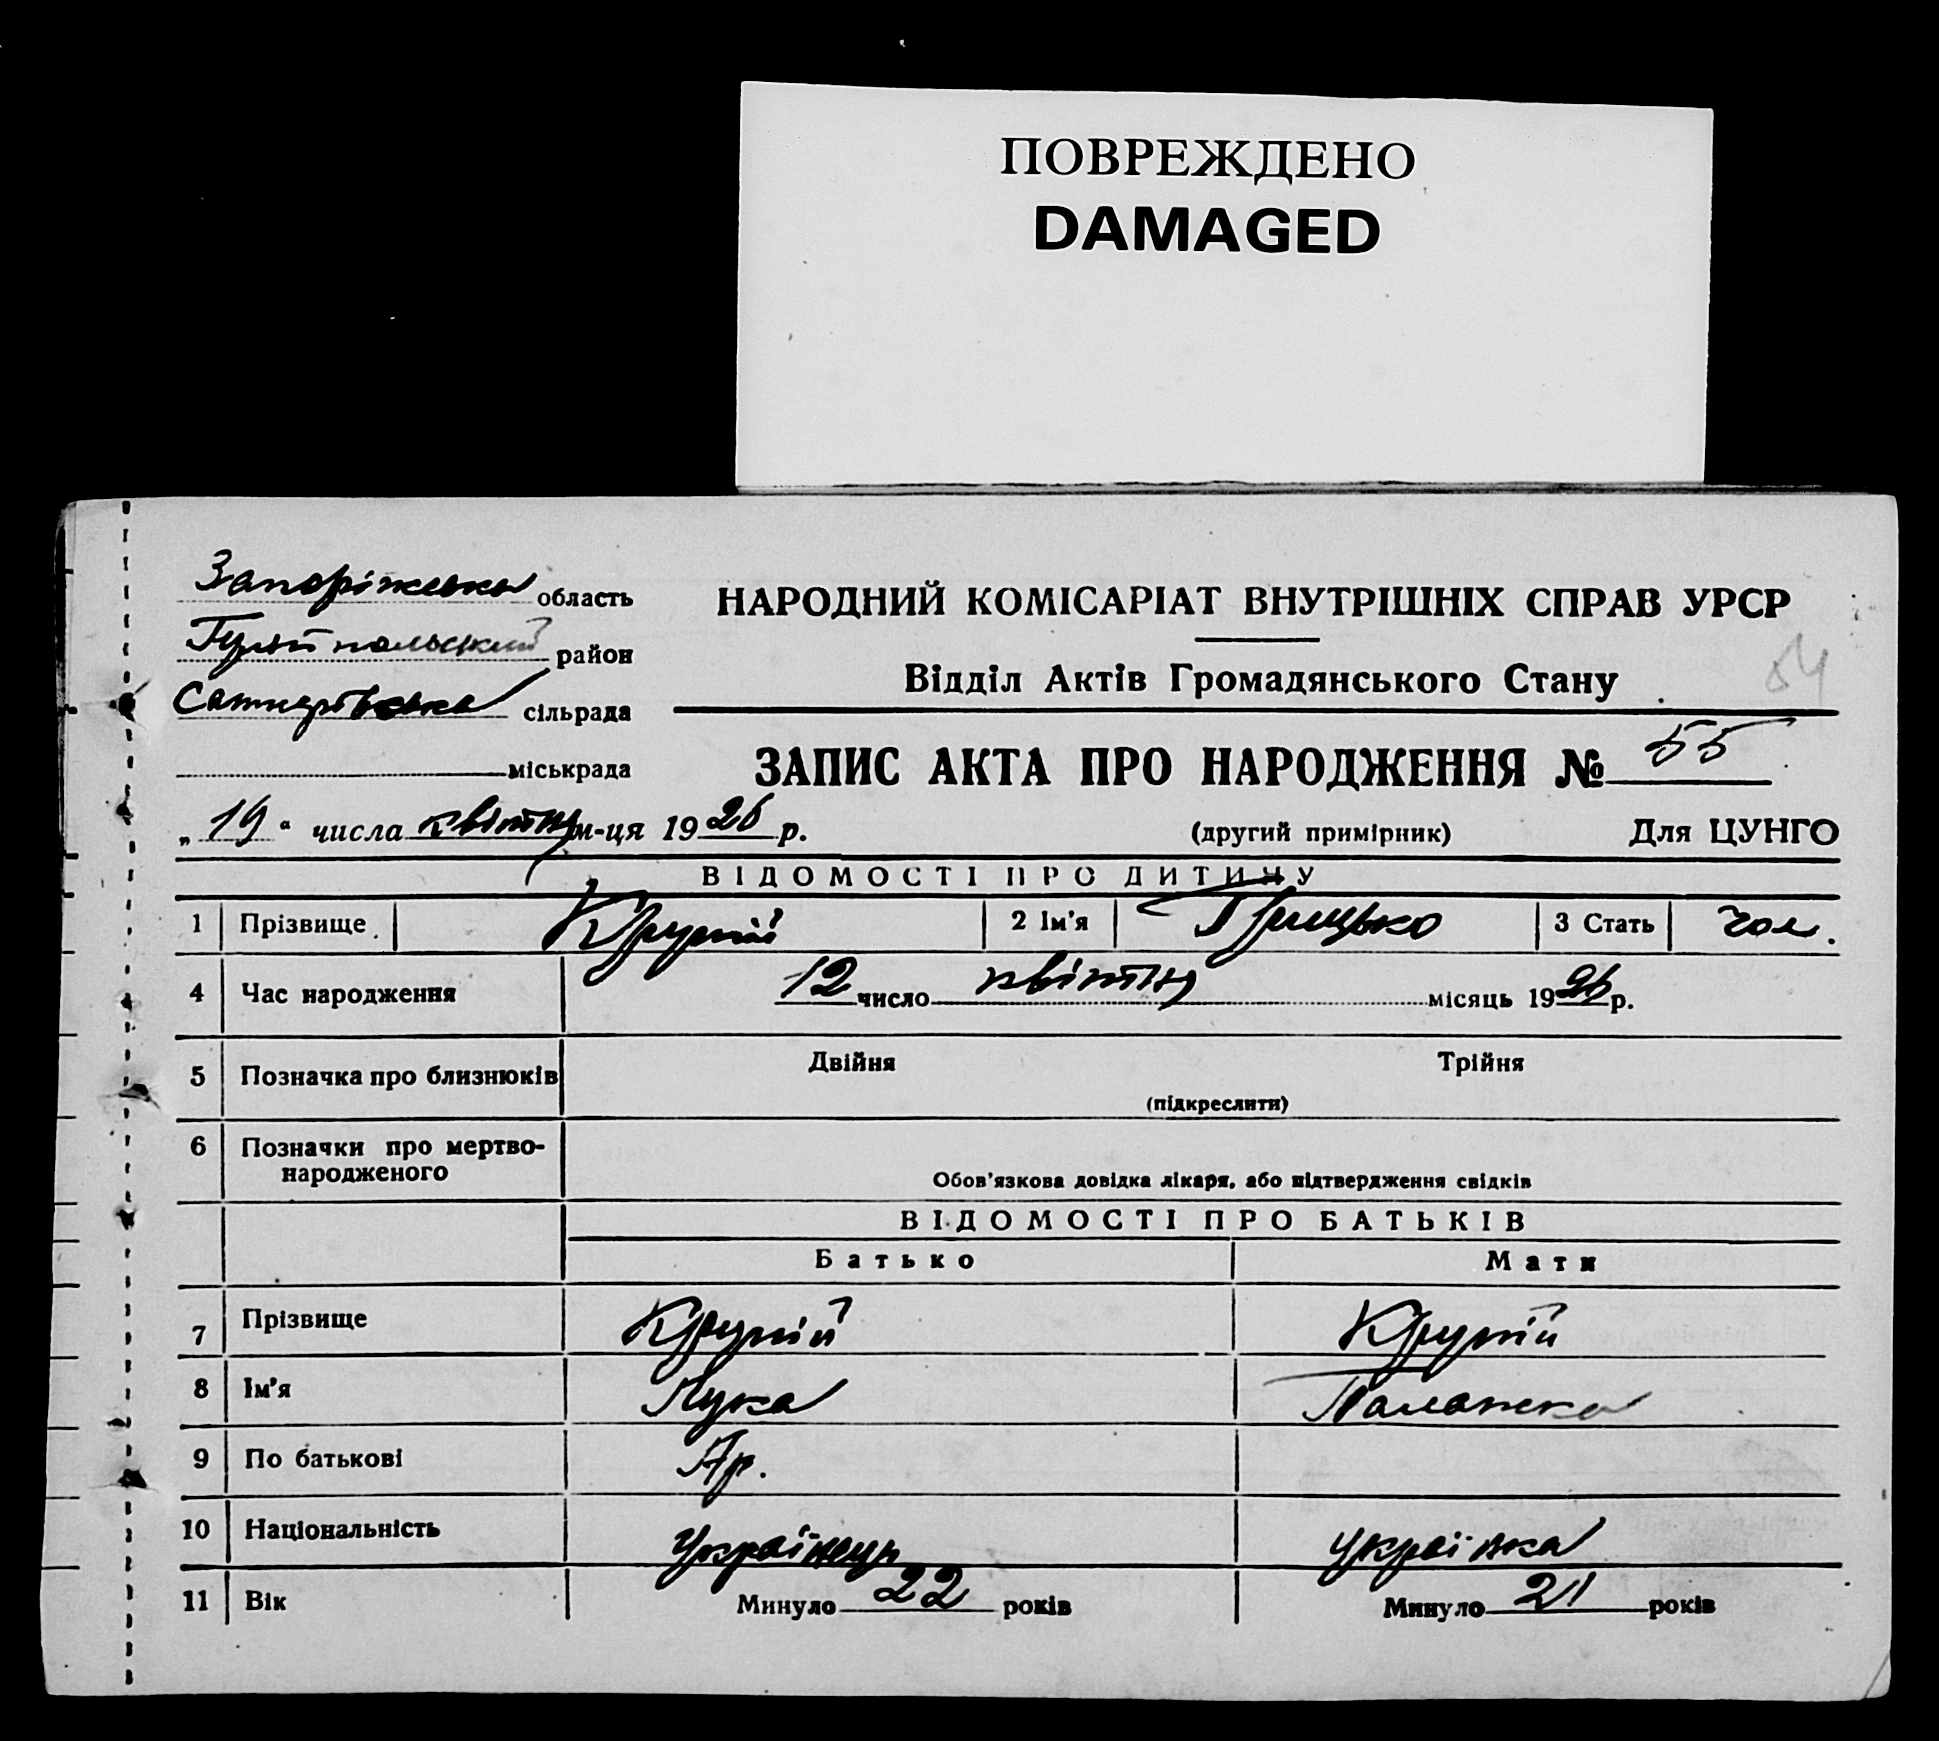 ПОВРЕЖДЕНО
DAMAGED
Запоріжська область
Гуляйпольський район
сільрада
міськрада
НАРОДНИЙ КОМІСАРІАТ ВНУТРІШНІХ СПРАВ УРСР
Відділ Актів Громадянського Стану
54
ЗАПИС АКТА ПРО НАРОДЖЕННЯ № 55
„19“ числа квітня м-ця 1926 р. (другий примірник) Для ЦУНГО
ВІДОМОСТІ ПРО ДИТИНУ
1 Прізвище Крупій 2 Ім'я Грицько 3 Стать чол.
4 Час народження 12 число квітня місяць 1926 р.
5 Позначка про близнюків Двійня Трійня
(підкреслити)
6 Позначки про мертво-
народженого
Обов'язкова довідка лікаря, або підтвердження свідків
ВІДОМОСТІ ПРО БАТЬКІВ
Батько Мати
7 Прізвище Крупій Крупій
8 Ім'я Лука Палажка
9 По батькові Яр.
10 Національність українець українка
11 Вік Минуло 22 років Минуло 21 років